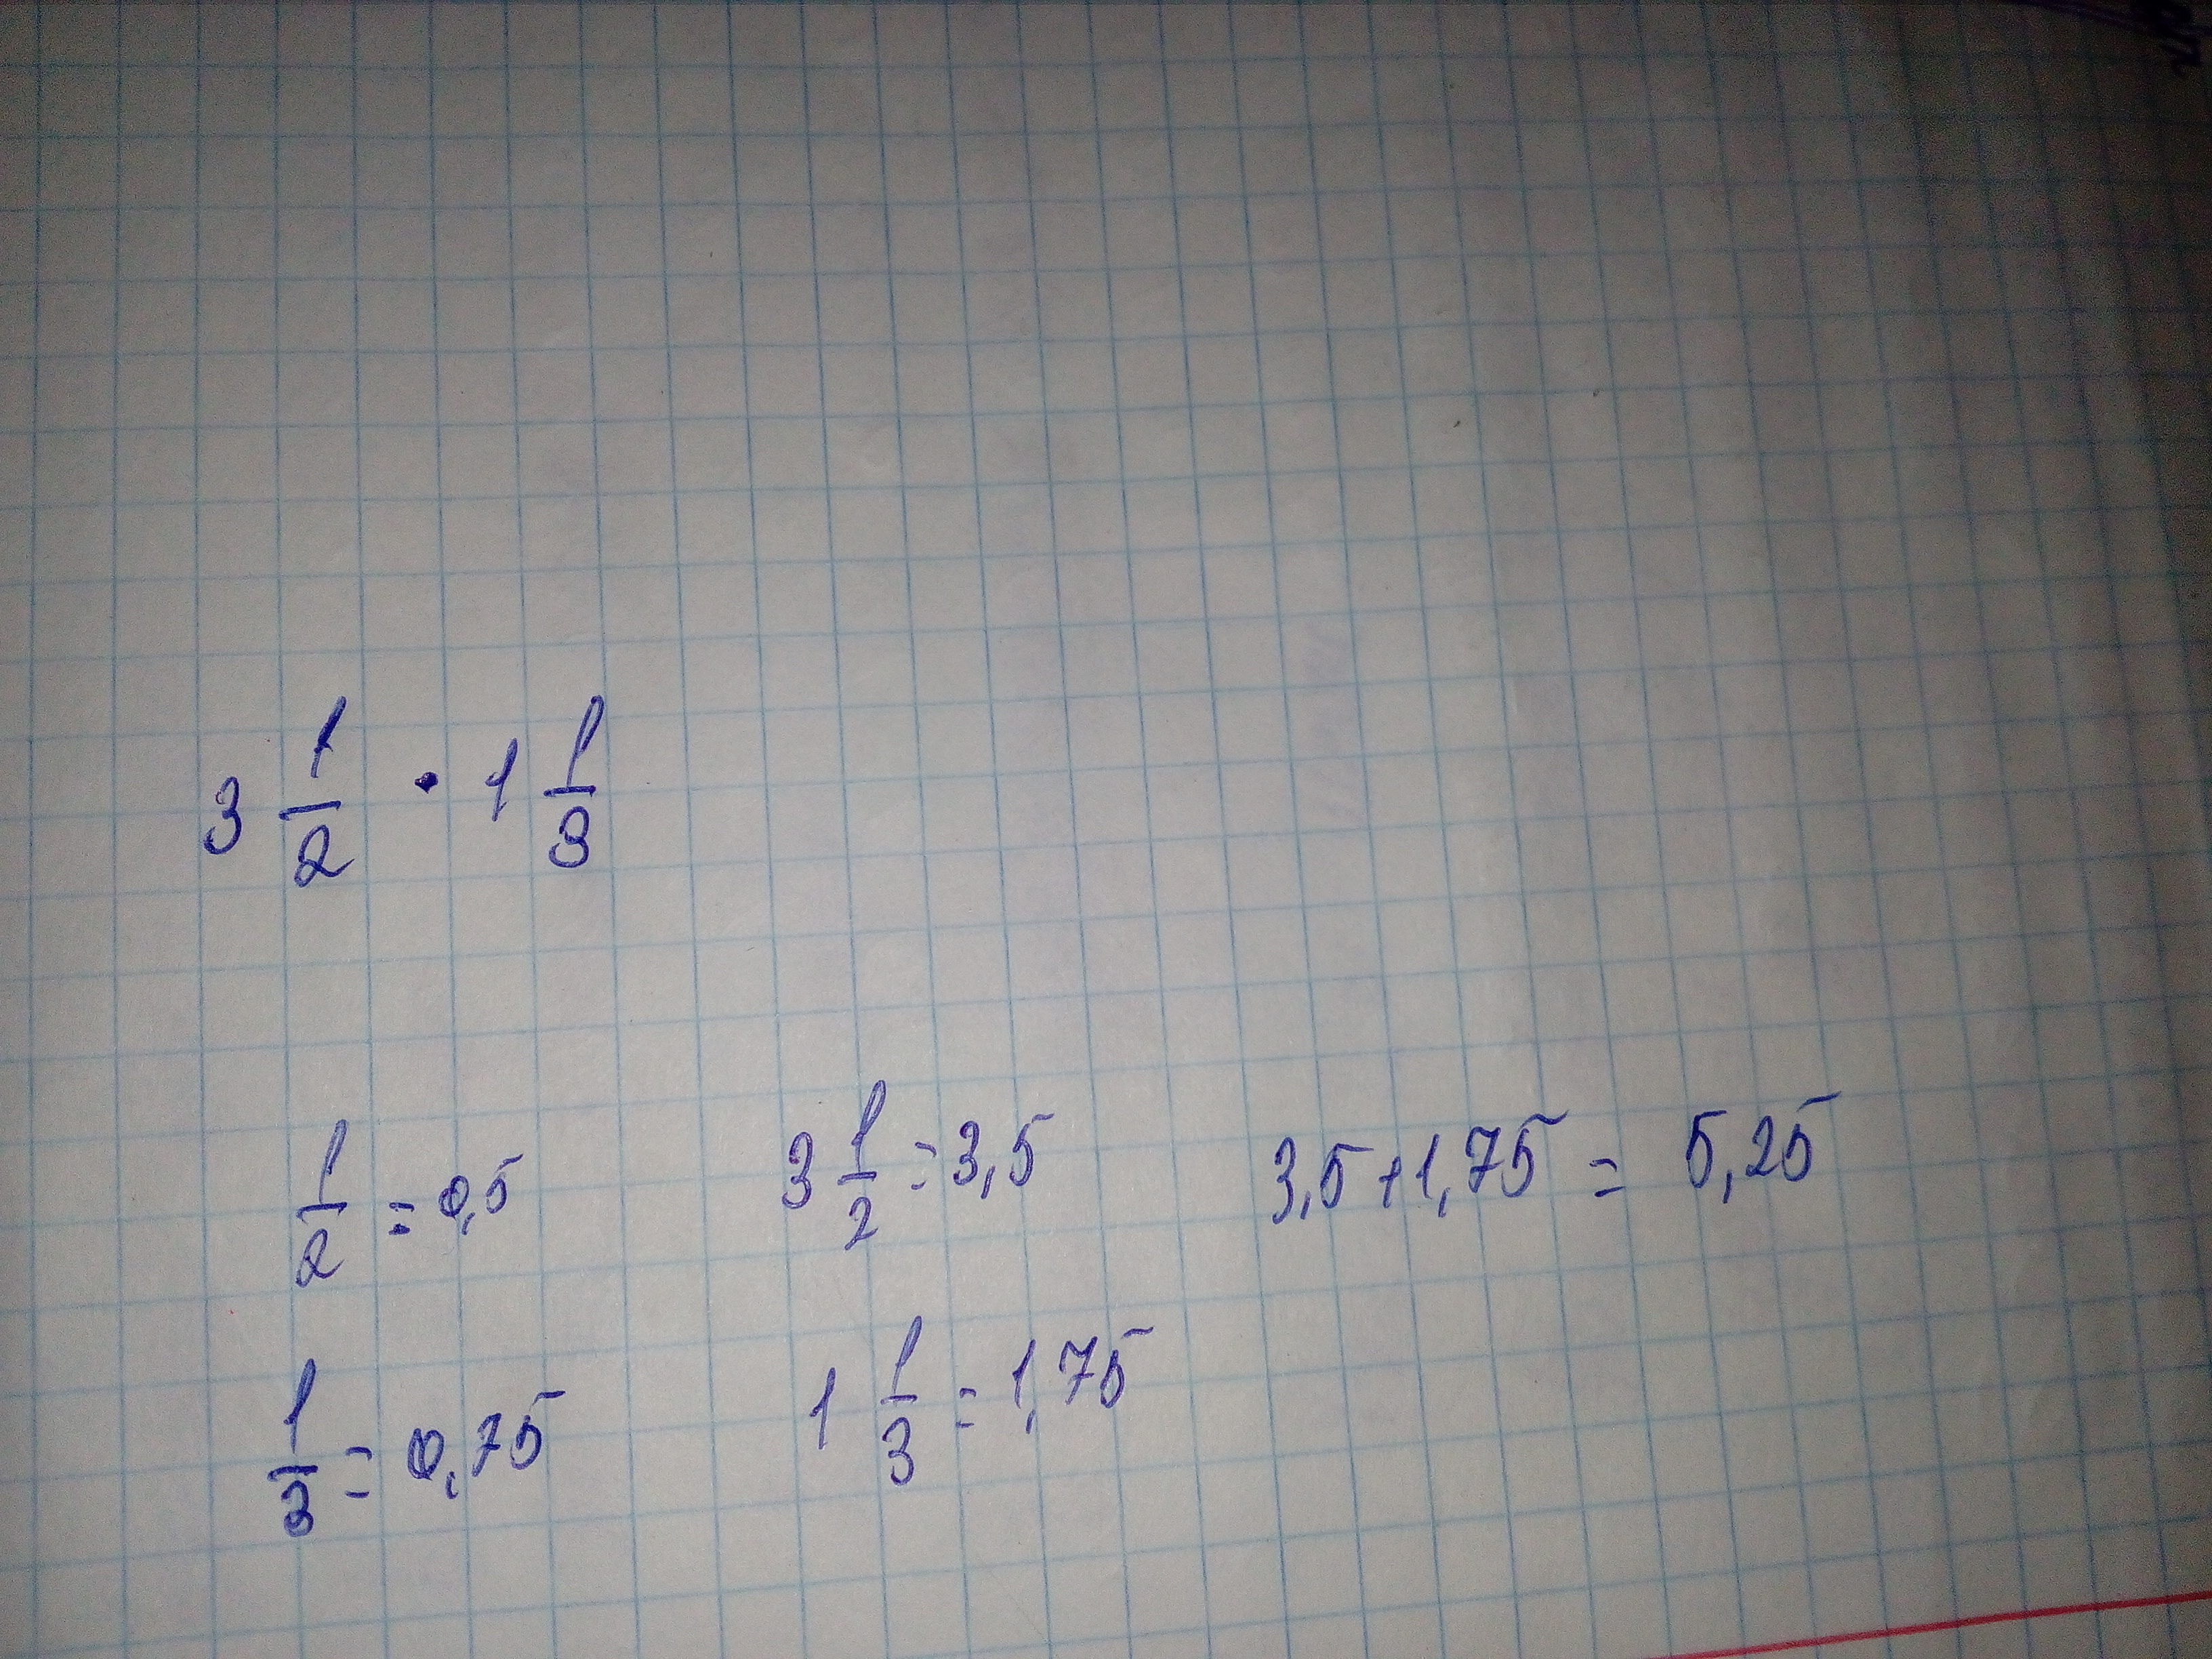 3 1/2 · 1 1/3
1/2 = 0,5
3 1/2 = 3,5
3,5 + 1,75 = 5,25
1/3 = 0,75
1 1/3 = 1,75